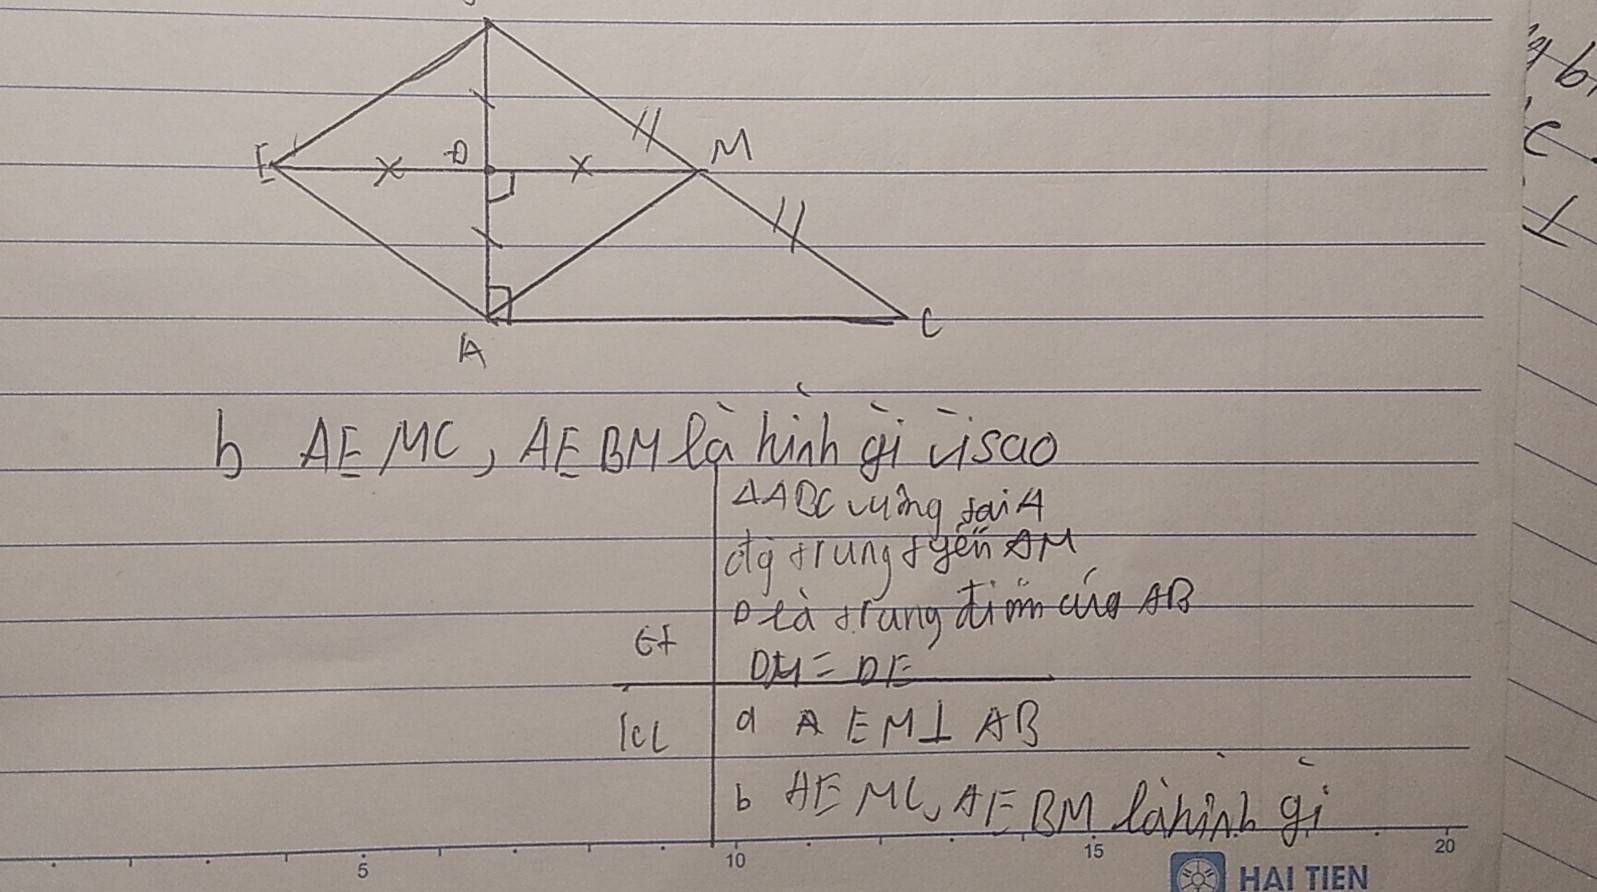 E D M
A C
b AEMC, AEBM là hình gì vì sao
ΔABC vuông tại A
đg trung tyến AM
D là trung điểm của AB
Gt
DM = DE
KL a EM ⊥ AB
b AEMC, AEBM là hình gì
5 10 15 20
HAI TIEN